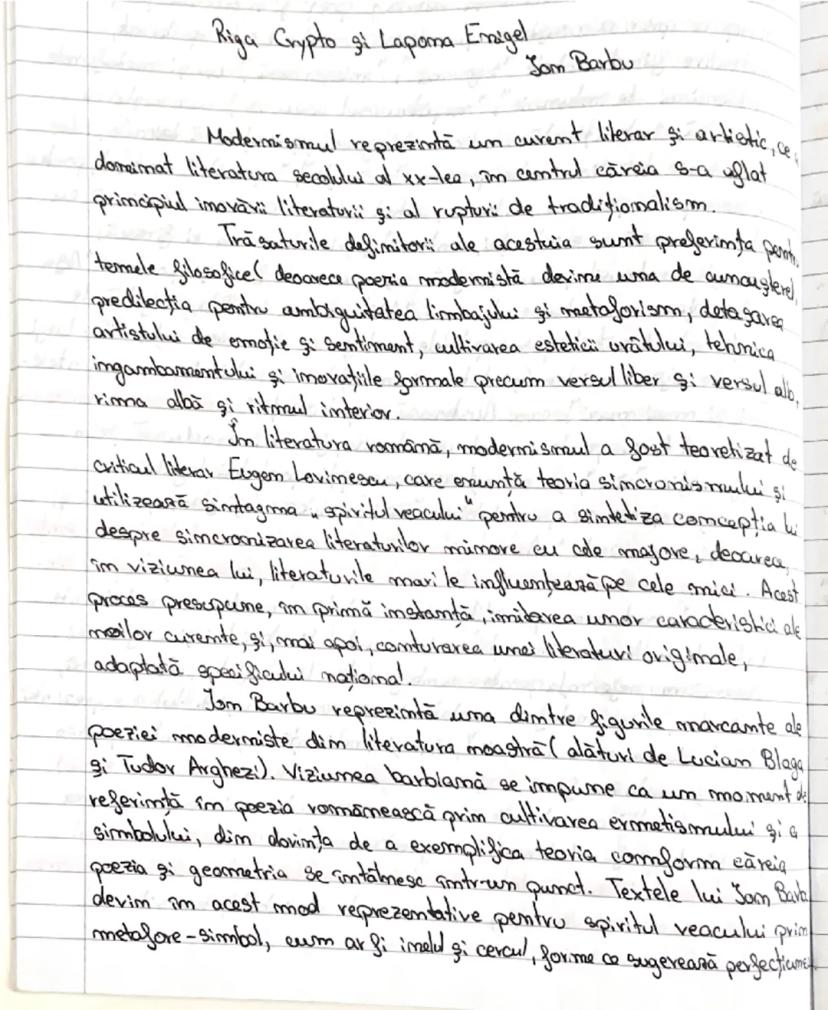 Riga Crypto și Lapona Enigel
Ion Barbu
Modernismul reprezintă un curent literar și artistic, ce a
dominat literatura secolului al xx-lea, în centrul căreia s-a aflat
principiul inovării literaturii și al rupturii de tradiționalism.
Trăsăturile definitorii ale acestuia sunt preferința pentru
temele filosofice (deoarece poezia modernistă devine una de cunoaștere),
predilecția pentru ambiguitatea limbajului și metaforism, detașarea
artistului de emoție și sentiment, cultivarea esteticii urâtului, tehnica
ingambamentului și inovațiile formale precum versul liber și versul alb,
rima albă și ritmul interior.
În literatura română, modernismul a fost teoretizat de
criticul literar Eugen Lovinescu, care enunță teoria sincronismului și
utilizează sintagma „spiritul veacului" pentru a sintetiza concepția lui
despre sincronizarea literaturilor minore cu cele majore, deoarece,
în viziunea lui, literaturile mari le influențează pe cele mici. Acest
proces presupune, în primă instanță, imitarea unor caracteristici ale
noilor curente, și, mai apoi, conturarea unei literaturi originale,
adaptată specificului național.
Ion Barbu reprezintă una dintre figurile marcante ale
poeziei moderniste din literatura noastră (alături de Lucian Blaga
și Tudor Arghezi). Viziunea barbiană se impune ca un moment de
referință în poezia românească prin cultivarea ermetismului și a
simbolului, din dorința de a exemplifica teoria conform căreia
poezia și geometria se întâlnesc într-un punct. Textele lui Ion Barbu
devin în acest mod reprezentative pentru spiritul veacului prin
metafore-simbol, cum ar fi inelul și cercul, forme ce sugerează perfecțiunea